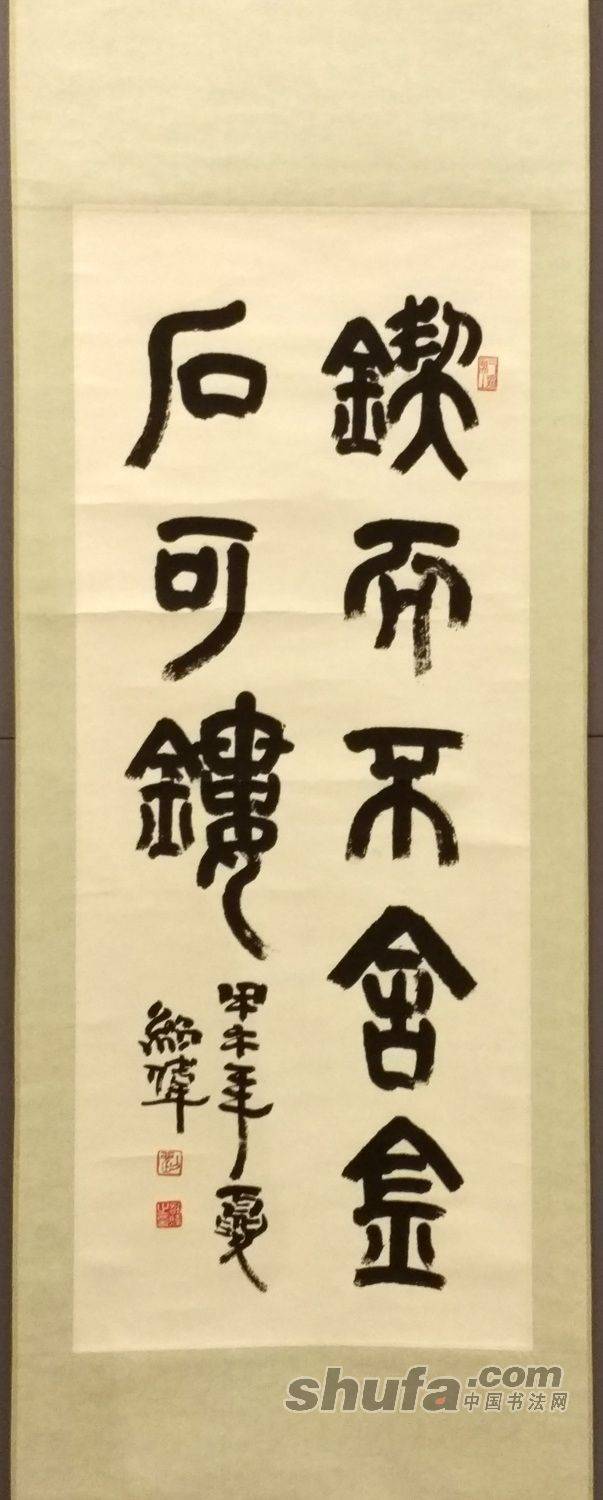 鍥而不舍金
石可鏤
甲午年夏
紹偉
shufa.com
中国书法网